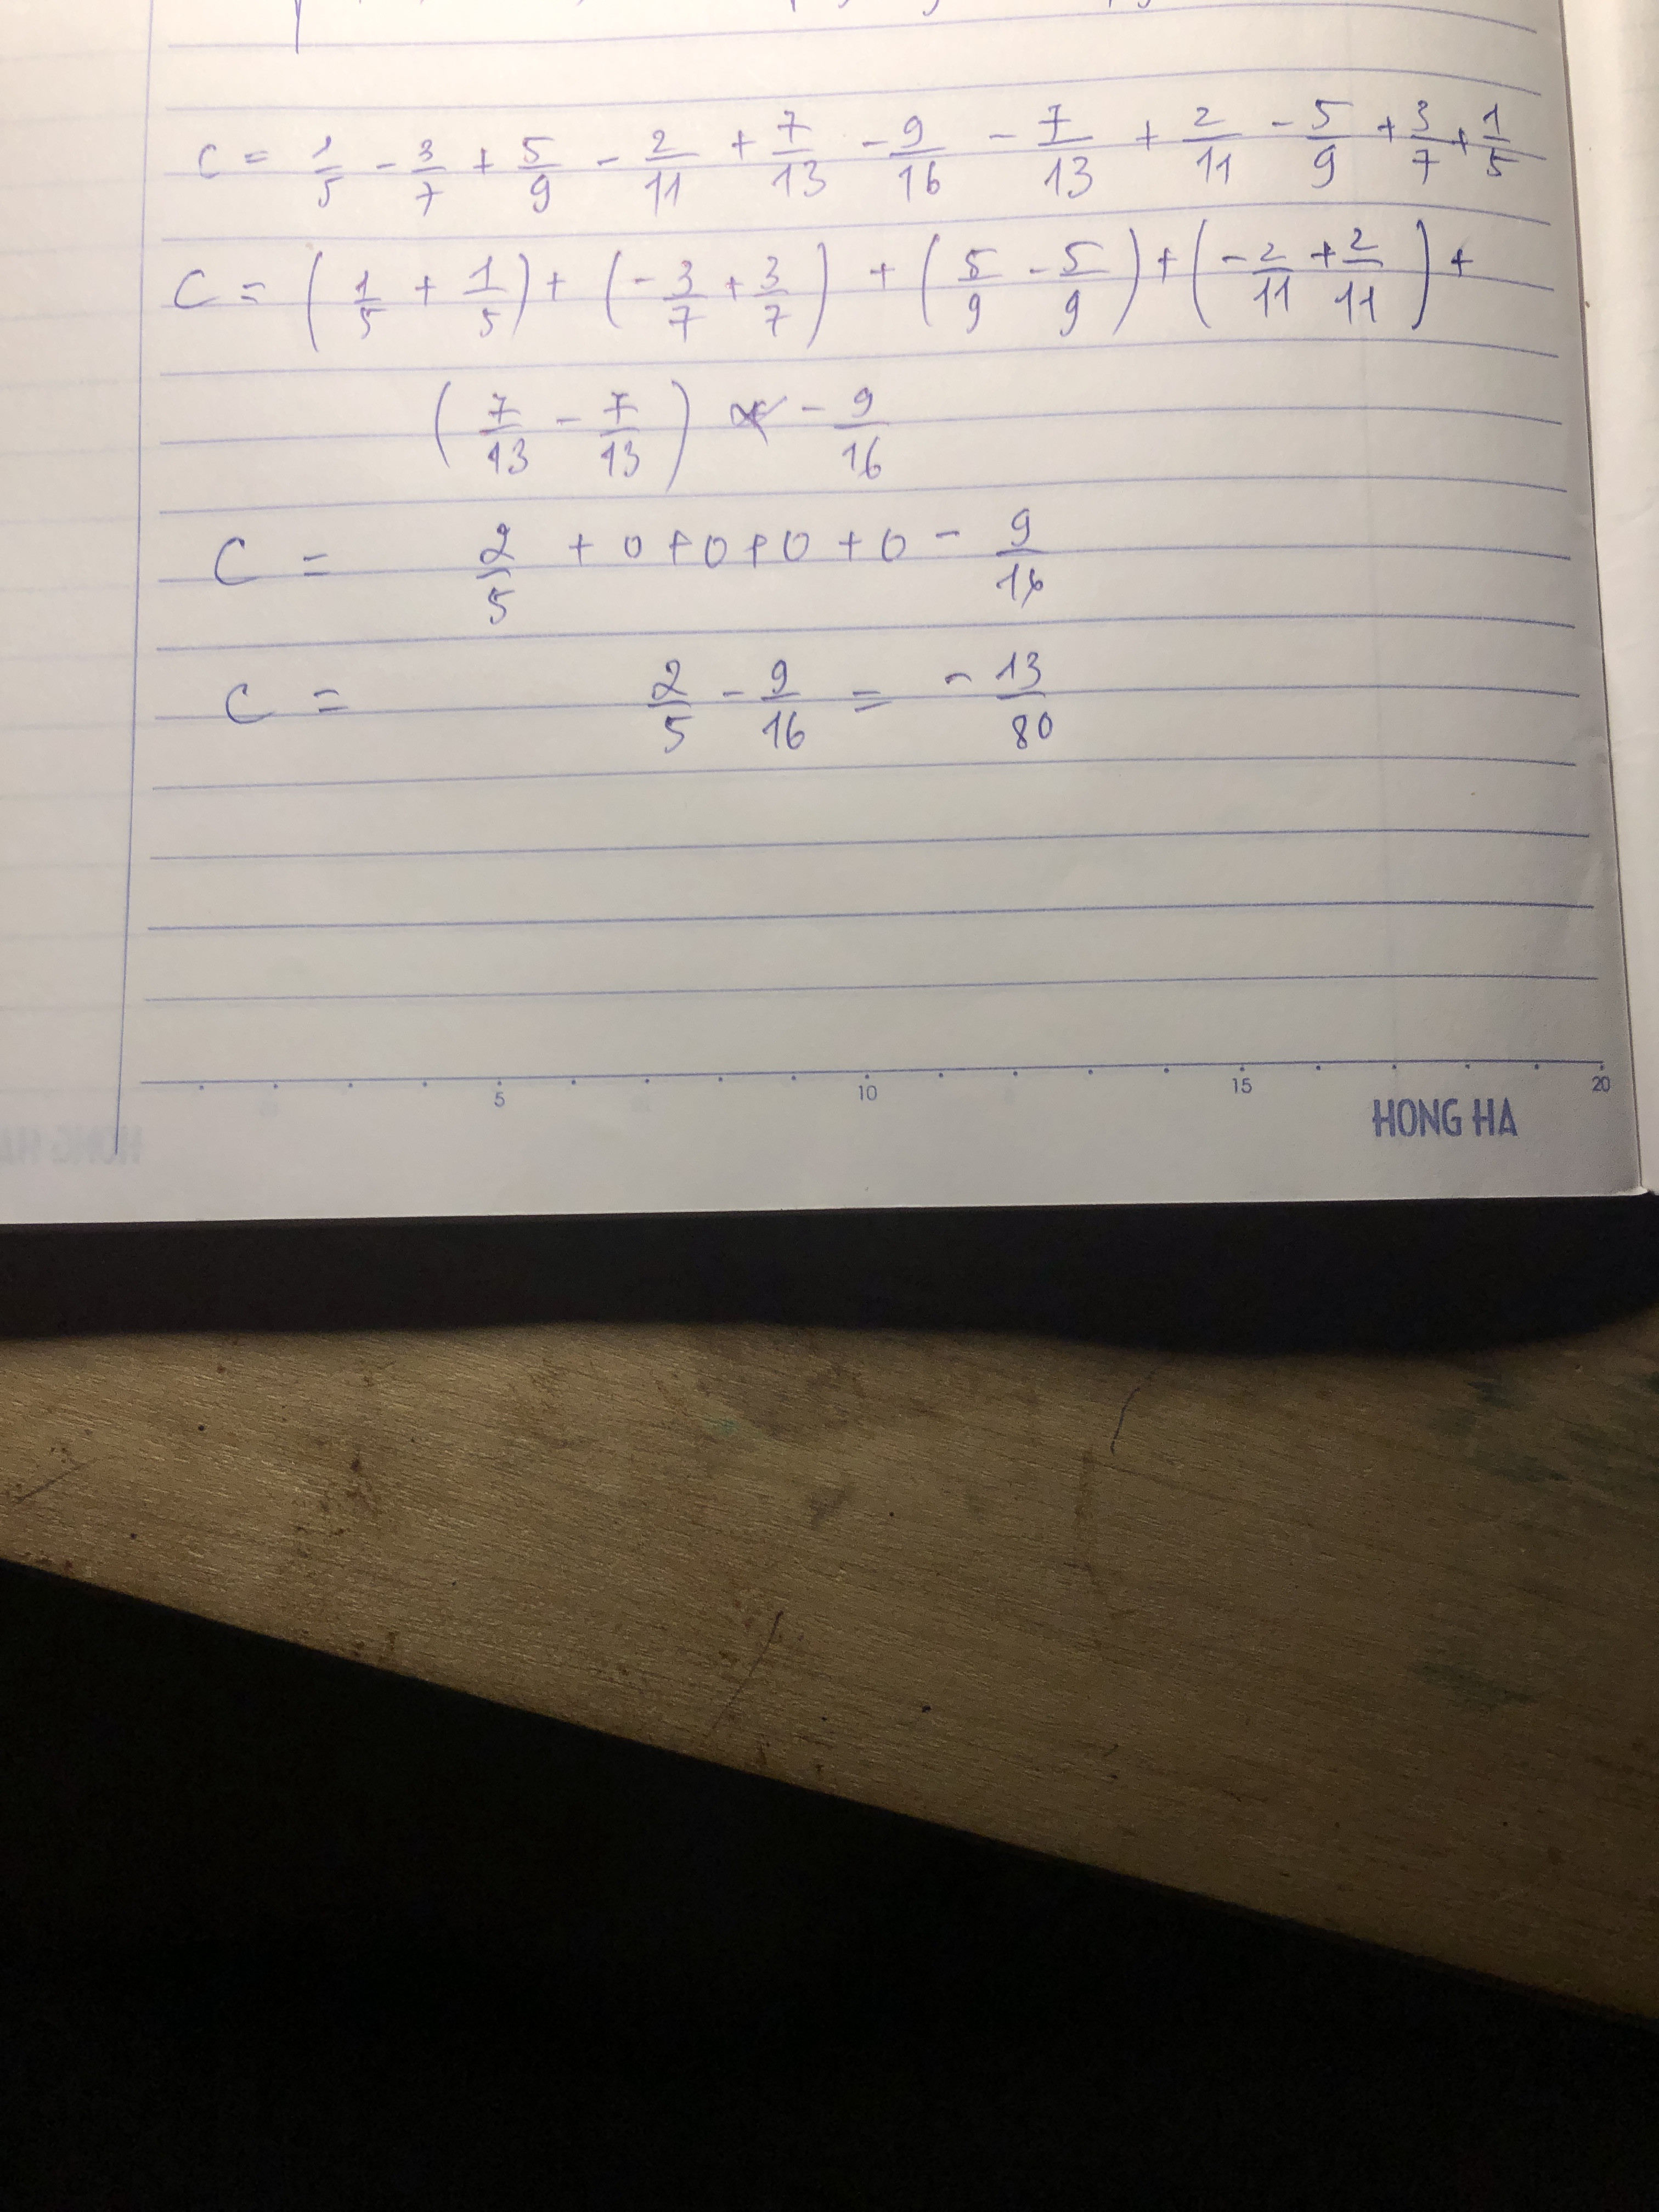 C = 1/5 - 3/7 + 5/9 - 2/11 + 7/13 - 9/16 - 7/13 + 2/11 - 5/9 + 3/7 + 1/5
C = (1/5 + 1/5) + (-3/7 + 3/7) + (5/9 - 5/9) + (-2/11 + 2/11) +
(7/13 - 7/13) - 9/16
C = 2/5 + 0 + 0 + 0 + 0 - 9/16
C = 2/5 - 9/16 = -13/80
5 10 15 20
HONG HA